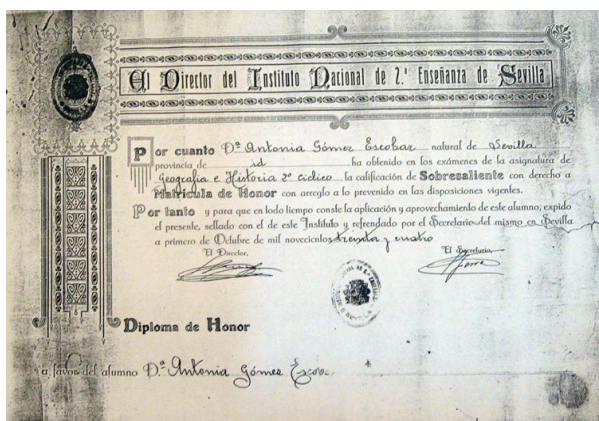 El Director del Instituto Nacional de 2ª Enseñanza de Sevilla
Por cuanto Dª Antonia Gómez Escobar natural de Sevilla
provincia de id ha obtenido en los exámenes de la asignatura de
Geografía e Historia 2º cíclico la calificación de Sobresaliente con derecho a
Matrícula de Honor con arreglo a lo prevenido en las disposiciones vigentes.
Por tanto y para que en todo tiempo conste la aplicación y aprovechamiento de este alumno, expido
el presente, sellado con el de este Instituto y refrendado por el Secretario del mismo en Sevilla
a primero de Octubre de mil novecientos treinta y cuatro
El Director, El Secretario
Diploma de Honor
a favor del alumno Dª Antonia Gómez